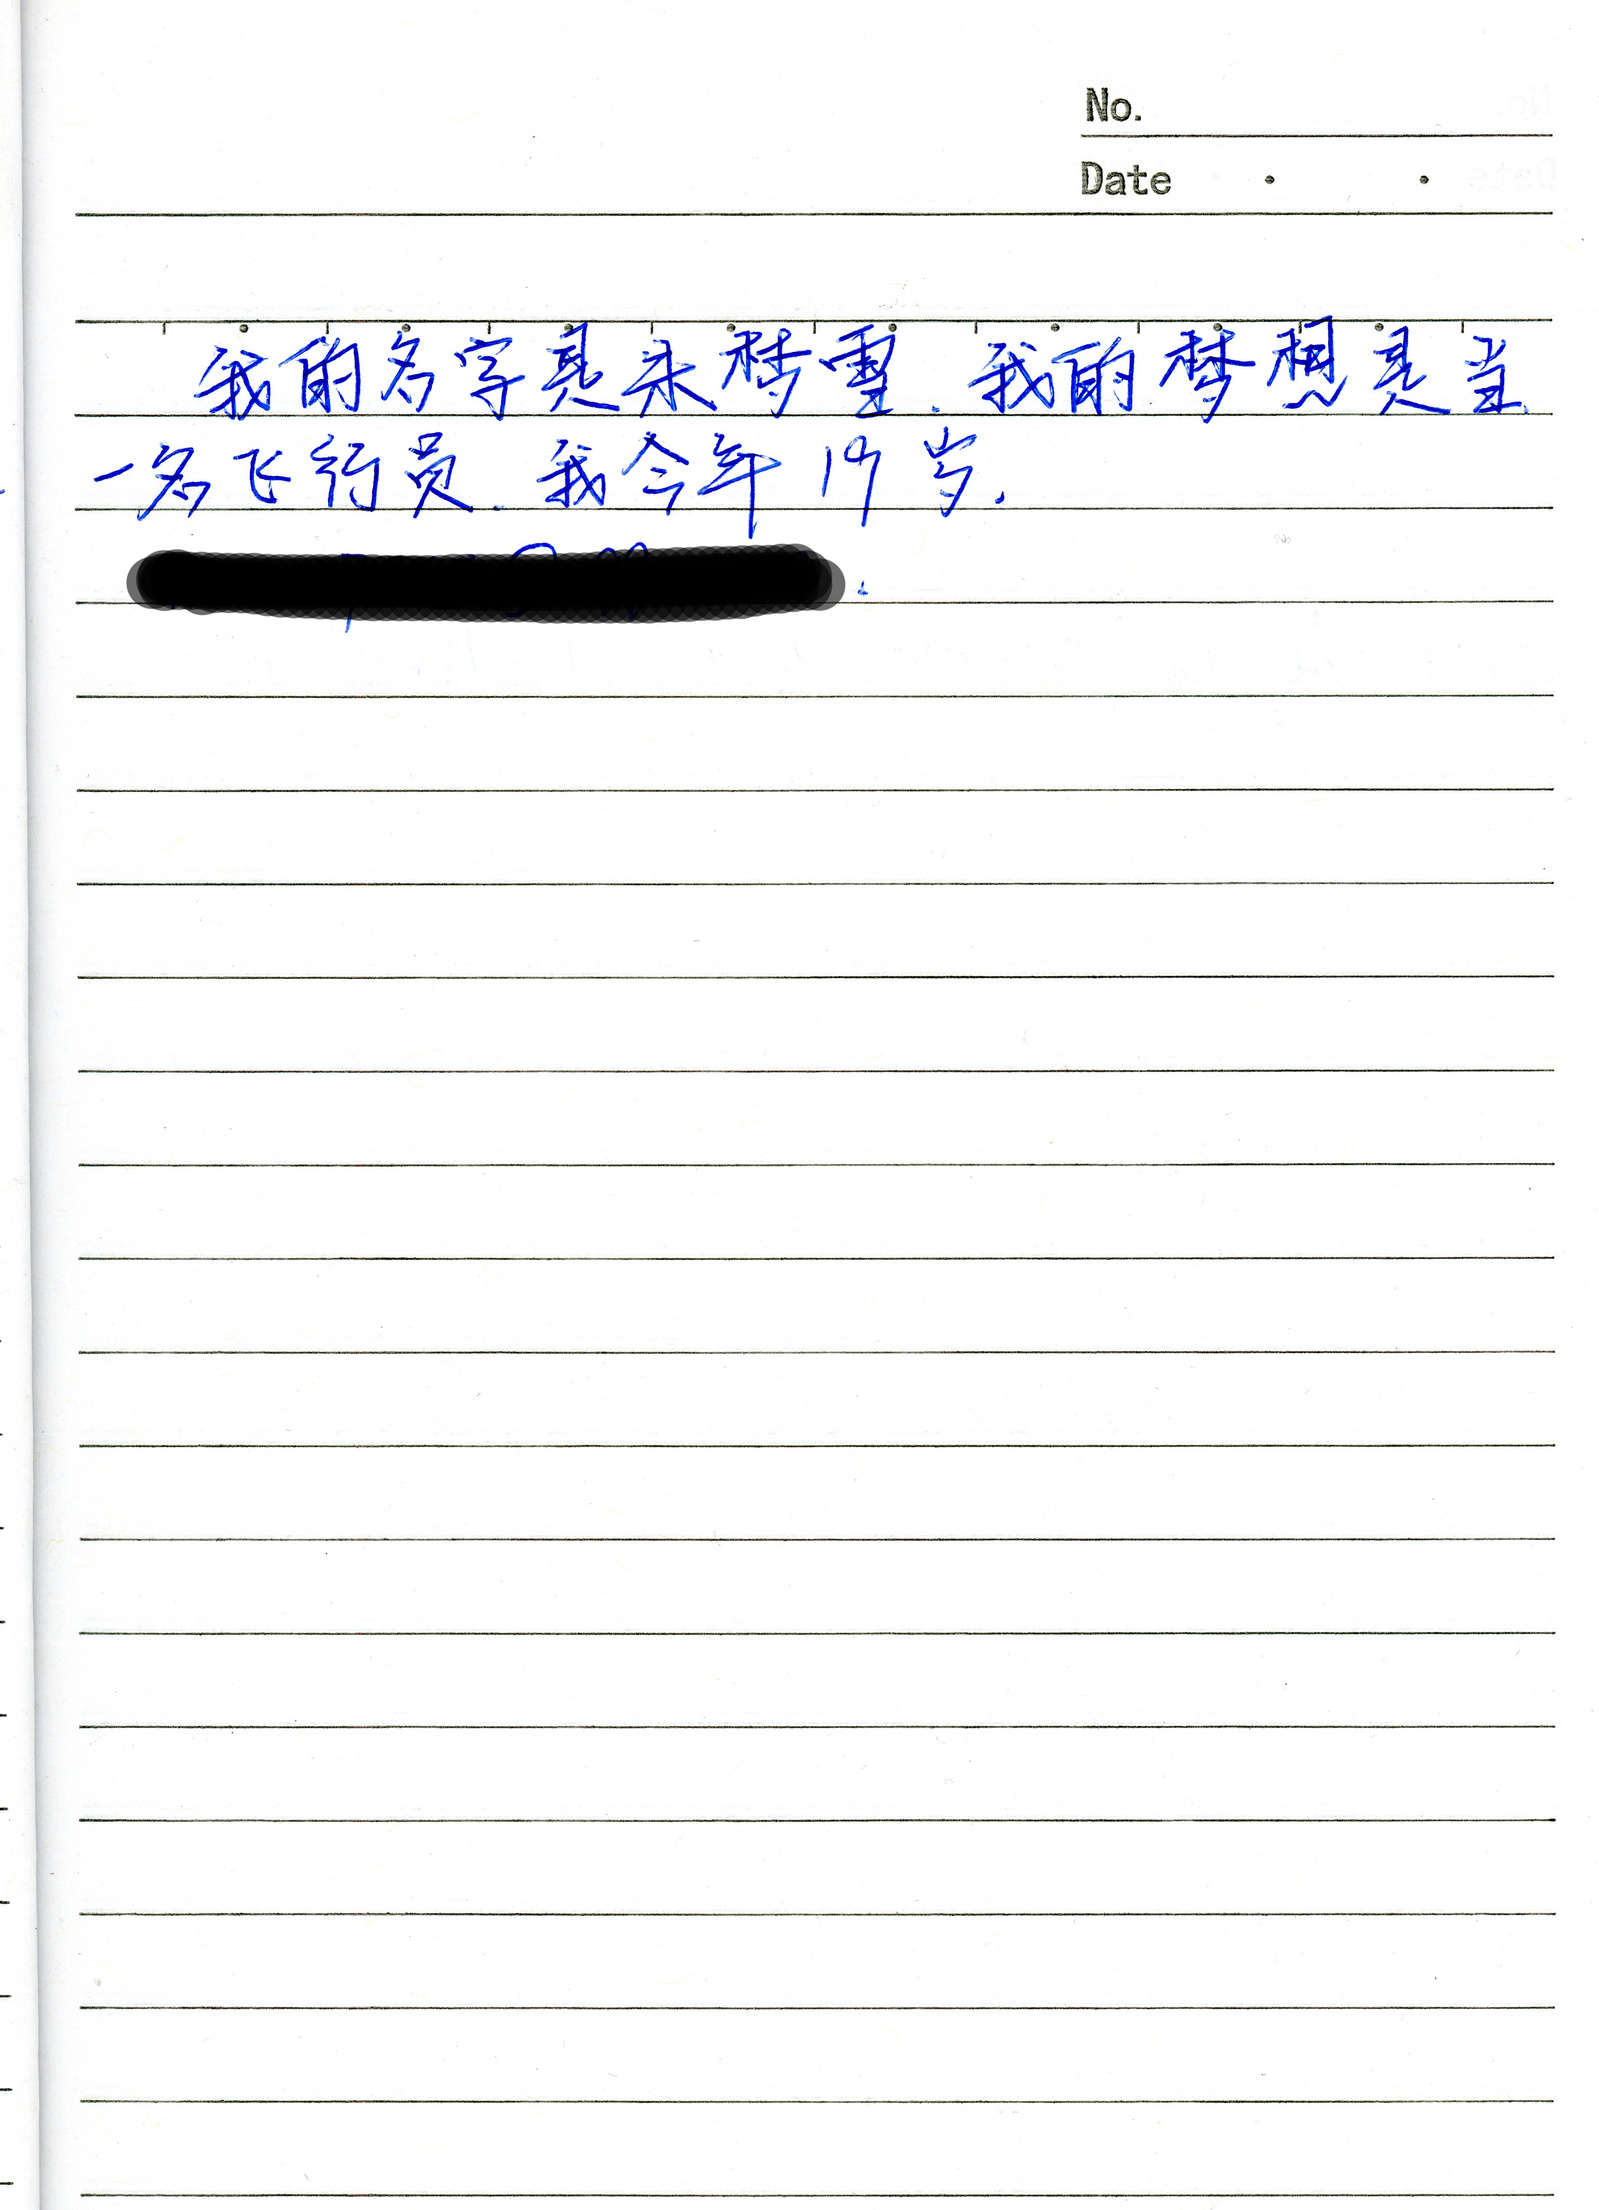 No.
Date
我的名字是朱梦雪.我的梦想是当
一名飞行员.我今年19岁.